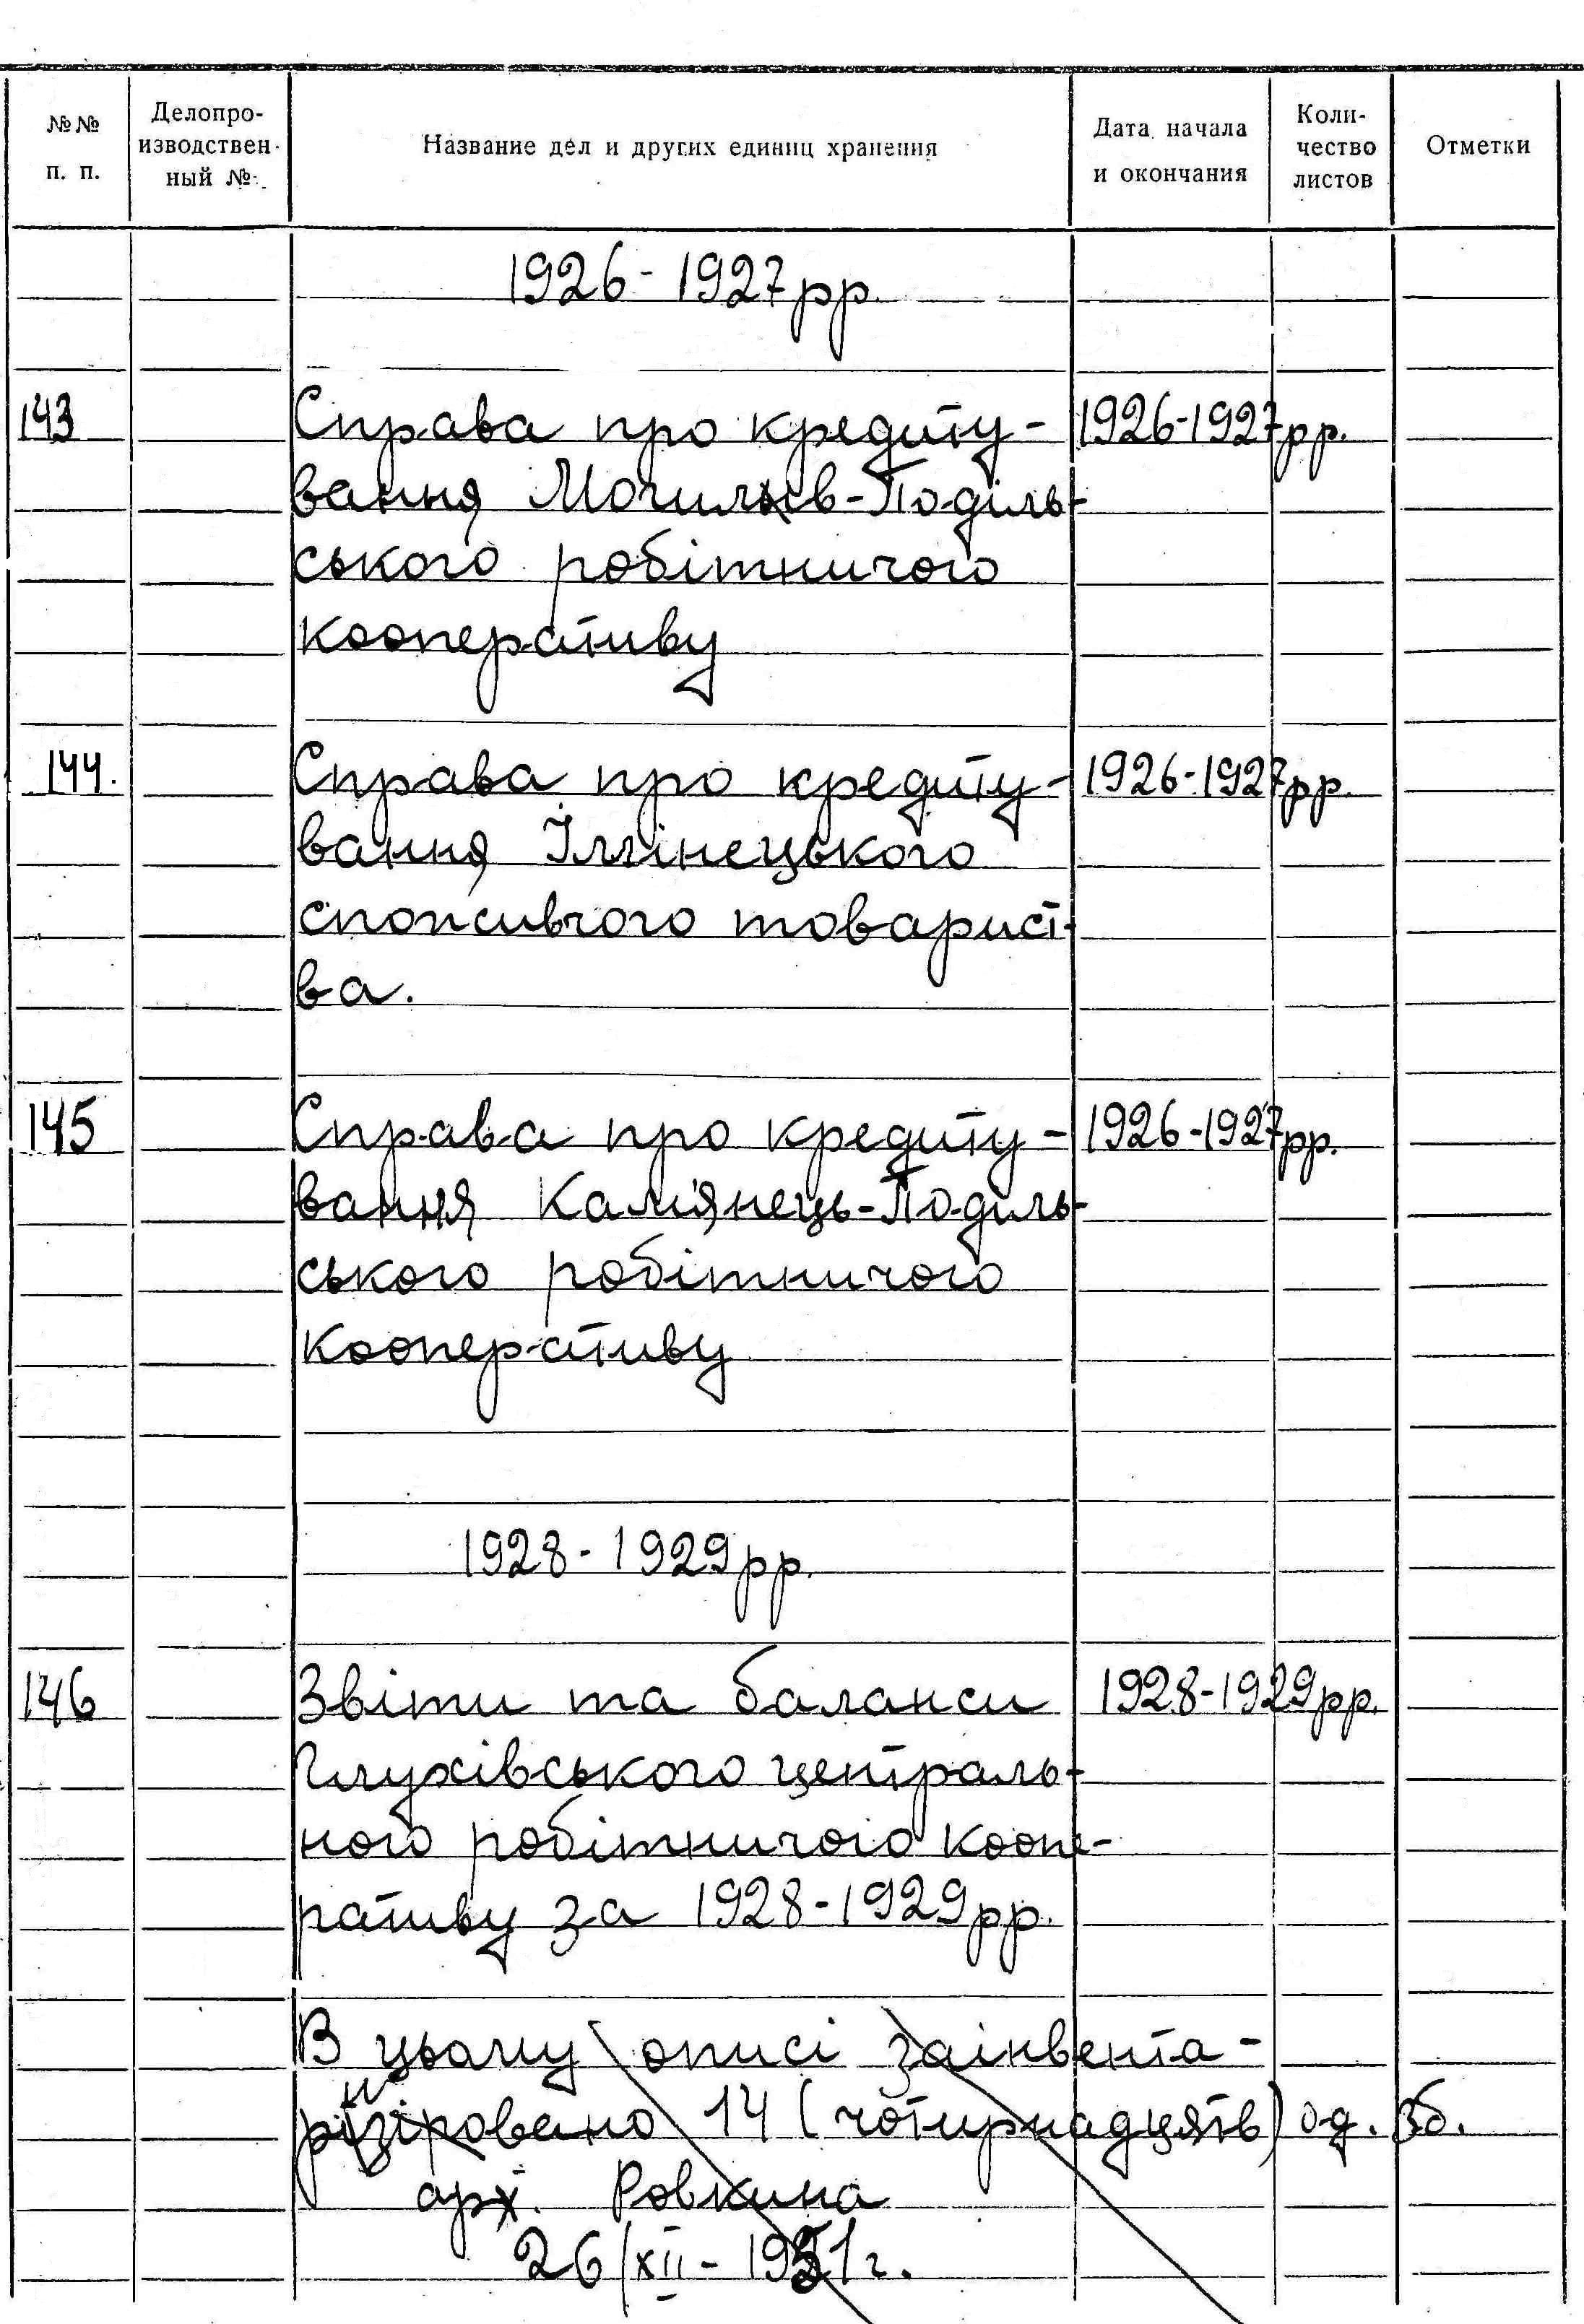 №№ п. п. Делопро-изводствен-ный №: Название дел и других единиц хранения Дата начала и окончания Коли-чество листов Отметки
1926-1927рр.
143 Справа про кредиту- 1926-1927рр.
вання Могилів-Поділь-
ського робітничого
кооперативу
144. Справа про кредиту- 1926-1927рр.
вання Іллінецького
споживчого товарист-
ва.
145 Справа про кредиту- 1926-1927рр.
вання Кам'янець-Поділь-
ського робітничого
кооперативу
1928-1929рр.
146 Звіти та баланси 1928-1929рр.
Глухівського централь-
ного робітничого коопе-
ративу за 1928-1929рр.
В цьому описі заінвента-
14 (чотирнадцять) од. зб.
арх. Ровкина
26/XII-1951г.